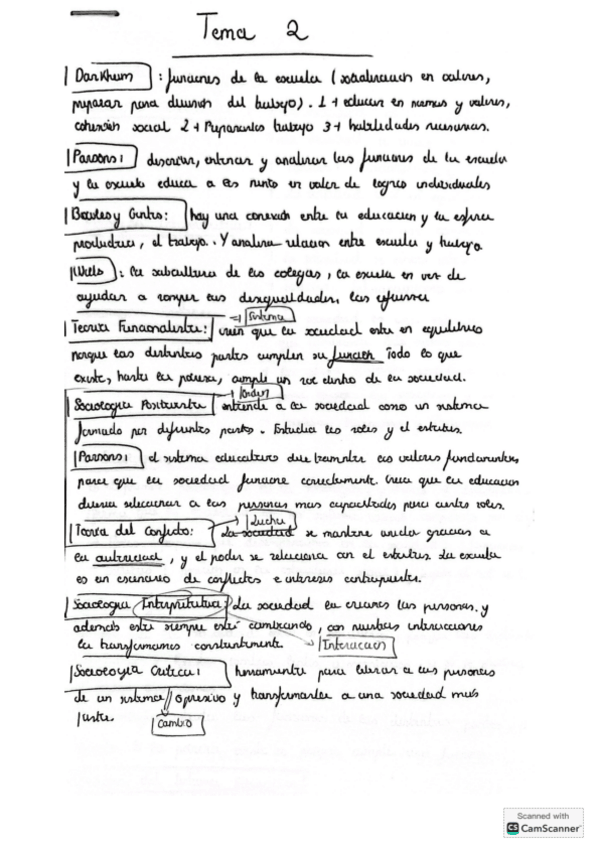 Tema 2
Darkhum : funciones de la escuela (socialización en valores,
preparar para división del trabajo). 1+ educar en normas y valores,
cohesión social 2+ Prepararlos trabajo 3+ habilidades necesarias.
Parsons: describir, entrenar y analizar las funciones de la escuela
y la escuela educa a los niños en valor de logros individuales
Bowles y Gintis: hay una conexión entre la educación y la esfera
productiva, el trabajo. Y analiza relación entre escuela y trabajo
Willis : la subcultura de los colegas, la escuela en vez de
ayudar a romper las desigualdades, las refuerza
→ Sistema
Teoría Funcionalista: creen que la sociedad esta en equilibrio
porque las distintas partes cumplen su función Todo lo que
existe, hasta la pobreza, cumple un rol dentro de la sociedad.
→ Orden
Sociología Positivista entiende a la sociedad como un sistema
formado por diferentes partes. Estudia los roles y el estatus.
Parsons: el sistema educativo debe transmitir los valores fundamentales
para que la sociedad funcione correctamente. Creía que la educación
debería seleccionar a las personas mas capacitadas para ciertos roles.
→ Lucha
Teoría del Conflicto: La sociedad se mantiene unida gracias a
la autoridad, y el poder se relaciona con el estatus. La escuela
es un escenario de conflictos e intereses contrapuestos.
Sociología Interpretativa: La sociedad la creamos las personas. y
además esta siempre está cambiando, con nuestras interacciones
la transformamos constantemente. → Interacción
Sociología Crítica: herramienta para liberar a las personas
de un sistema opresivo y transformarla a una sociedad más
justa.
Cambio
Scanned with
CS CamScanner